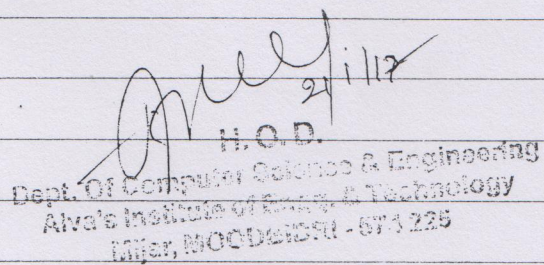 21/1/17
H. O. D.
Dept. Of Computer Science & Engineering
Alva's Institute of Engg. & Technology
Mijar, MOODBIDRI - 574 225